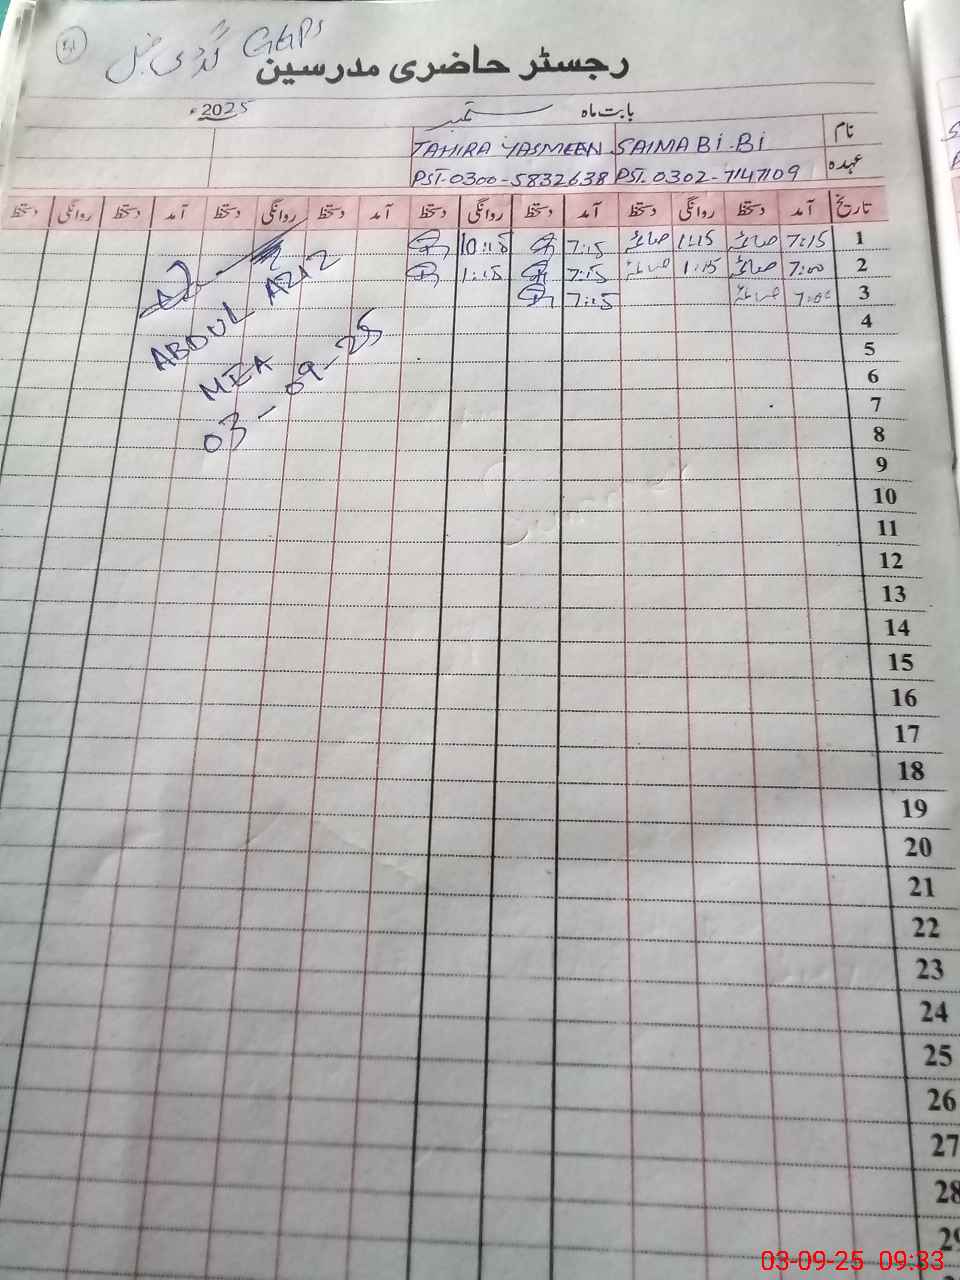 GGPS گڈی خیل
رجسٹر حاضری مدرسین
بابت ماہ ستمبر 2025ء
نام SAIMA BI-BI TAHIRA YASMEEN
عہدہ PST-0302-7147109 PST-0300-5832638
تاریخ آمد دستخط روانگی دستخط آمد دستخط روانگی دستخط آمد دستخط روانگی دستخط آمد دستخط روانگی دستخط
1 7:15 صائمہ 1:15 صائمہ 7:15 10:15
2 7:00 صائمہ 1:15 صائمہ 7:15 1:15
3 7:00 صائمہ 7:15
4
5
6
7
8
9
10
11
12
13
14
15
16
17
18
19
20
21
22
23
24
25
26
27
28
29
ABDUL AZIZ
MEA
03-09-25
03-09-25 09:33